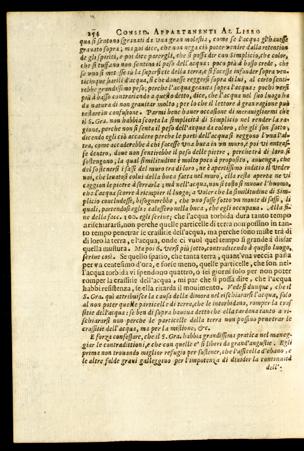 256 CONSID. APPARTENENTI AL LIBRO
qua si sentono sgrauati da vna gran molestia, come se l'acqua gli hauesse
grauato sopra; mi par dice, che non nega ciò poter venire dalla retention
de gli spiriti, e poi dice parergli, che si possa dir con Simplicio, che coloro,
che si tuffano non sentono il peso dell'acqua: poco più à basso crede, che
se vno si mettesse sù la superficie della terra, e si facesse
rebbe grandissimo peso; perche l'acqua grauita sopra l'acqua: pochi versi
più à basso contrauenendo a questo detto, dice, che l'acqua nel suo luogo hà
da natura di non grauitar molto; per lo che il lettore à gran ragione può
restare in confusione. Parmi bene hauer occasione di merauigliarmi che
il S. Gra. non habbia scorta la simplicità di Simplicio nel render la ra-
gione, perche non si senta il peso dell'acqua da coloro, che già son sotto;
dicendo egli ciò accadere perche le parti dell'acqua si reggono l'vna l'al-
tra, come accaderebbe à chi facesse vna buca in vn muro, e poi vi entras-
se dentro, doue non sentirebbe il peso delle pietre, perche trà di loro si
sostengono; la qual similitudine è molto poco à proposito,
del sostenersi i sassi del muro trà di loro, ne è apertissimo inditio il veder
noi, che leuatosi colui della buca fatta nel muro, ella resta aperta ne vi
caggion le pietre à serrarla; mà nell'acqua, non sì tosto si muoue l'huomo,
che l'acqua scorre à rioccupar il luogo; à voler che la similitudine di Sim-
plicio concludesse, bisognerebbe, che vno fusse sotto vn monte di sassi, li
quali, partendosi egli calassero nella buca, che egli occupaua. Alla fi-
ne della facc. 100. egli scriue; che l'acqua torbida dura tanto tempo
a rischiararsi, non perche quelle particelle di terra non possino in tan-
to tempo penetrar le crassitie dell'acqua, mà perche sono miste trà di
di loro la terra, e l'acqua, onde ci vuol quel tempo sì grande à disfar
quella mistura. Mà poi 6. versi più sotto, contradicendo à questo luogo,
scriue così. Se quello spatio, che tanta terra, quant'vna veccia passa
per vn centesimo d'ora, e forse meno, quelle particelle, che son nel-
l'acqua torbida vi spendono quattro, ò sei giorni solo per non poter
romper la crassitie dell'acqua, mi par che si possa dire, che l'acqua
habbi resistenza, e ella ritardi il mouimento. Vedesi dunque, che il
S. Gra. quì attribuisce la causa della dimora nel rischiararsi l'acqua, solo
al non poter quelle particelle di terra, che le intorbidano, romper la crassi-
tie dell'acqua: e se ben di sopra haueua detto che ella tardaua tanto a ri-
schiararsi non perche le particelle della terra non possino penetrar le
crassitie dell'acqua, ma per la mistione, &c.
E forza confessare, che il S. Gra. habbia grandissima pratica nel maneg-
giar le contradittioni, e che con quelle e' si liberi da grand'angustie. Egli
prima non trouando miglior refugio per sostener, che l'assicella d'ebano, e
le altre falde graui galleggino per l'impotenza di diuider la continuità
dell'